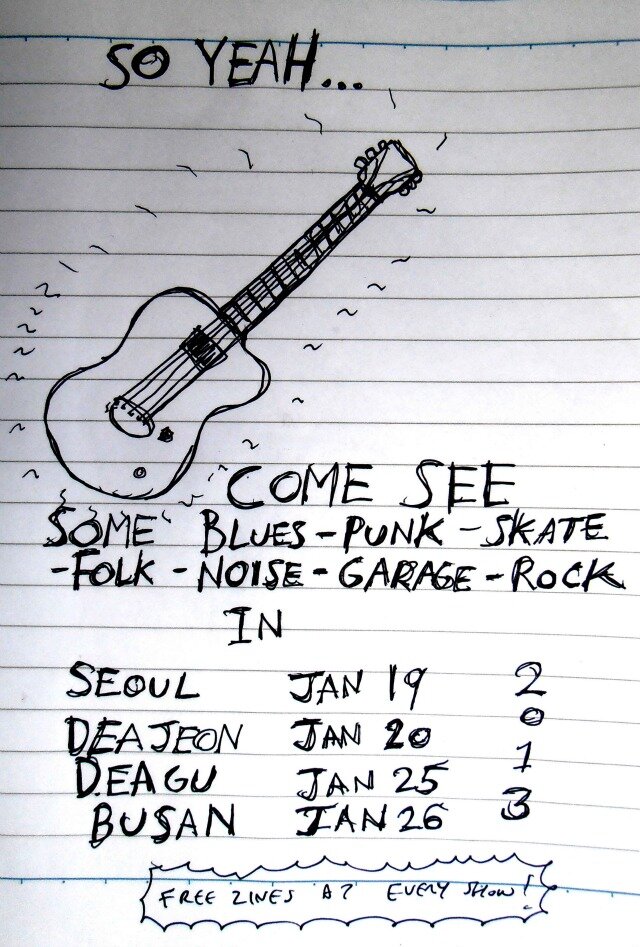 SO YEAH...
COME SEE
SOME BLUES-PUNK-SKATE
-FOLK-NOISE-GARAGE-ROCK
IN
SEOUL JAN 19 2
DEAJEON JAN 20 0
DEAGU JAN 25 1
BUSAN JAN 26 3
FREE ZINES AT EVERY SHOW!